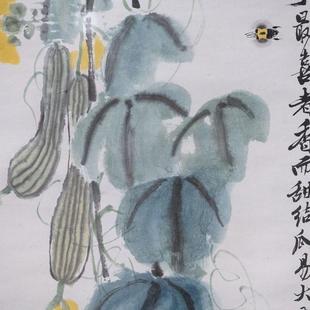 最喜老香而甜结瓜易大